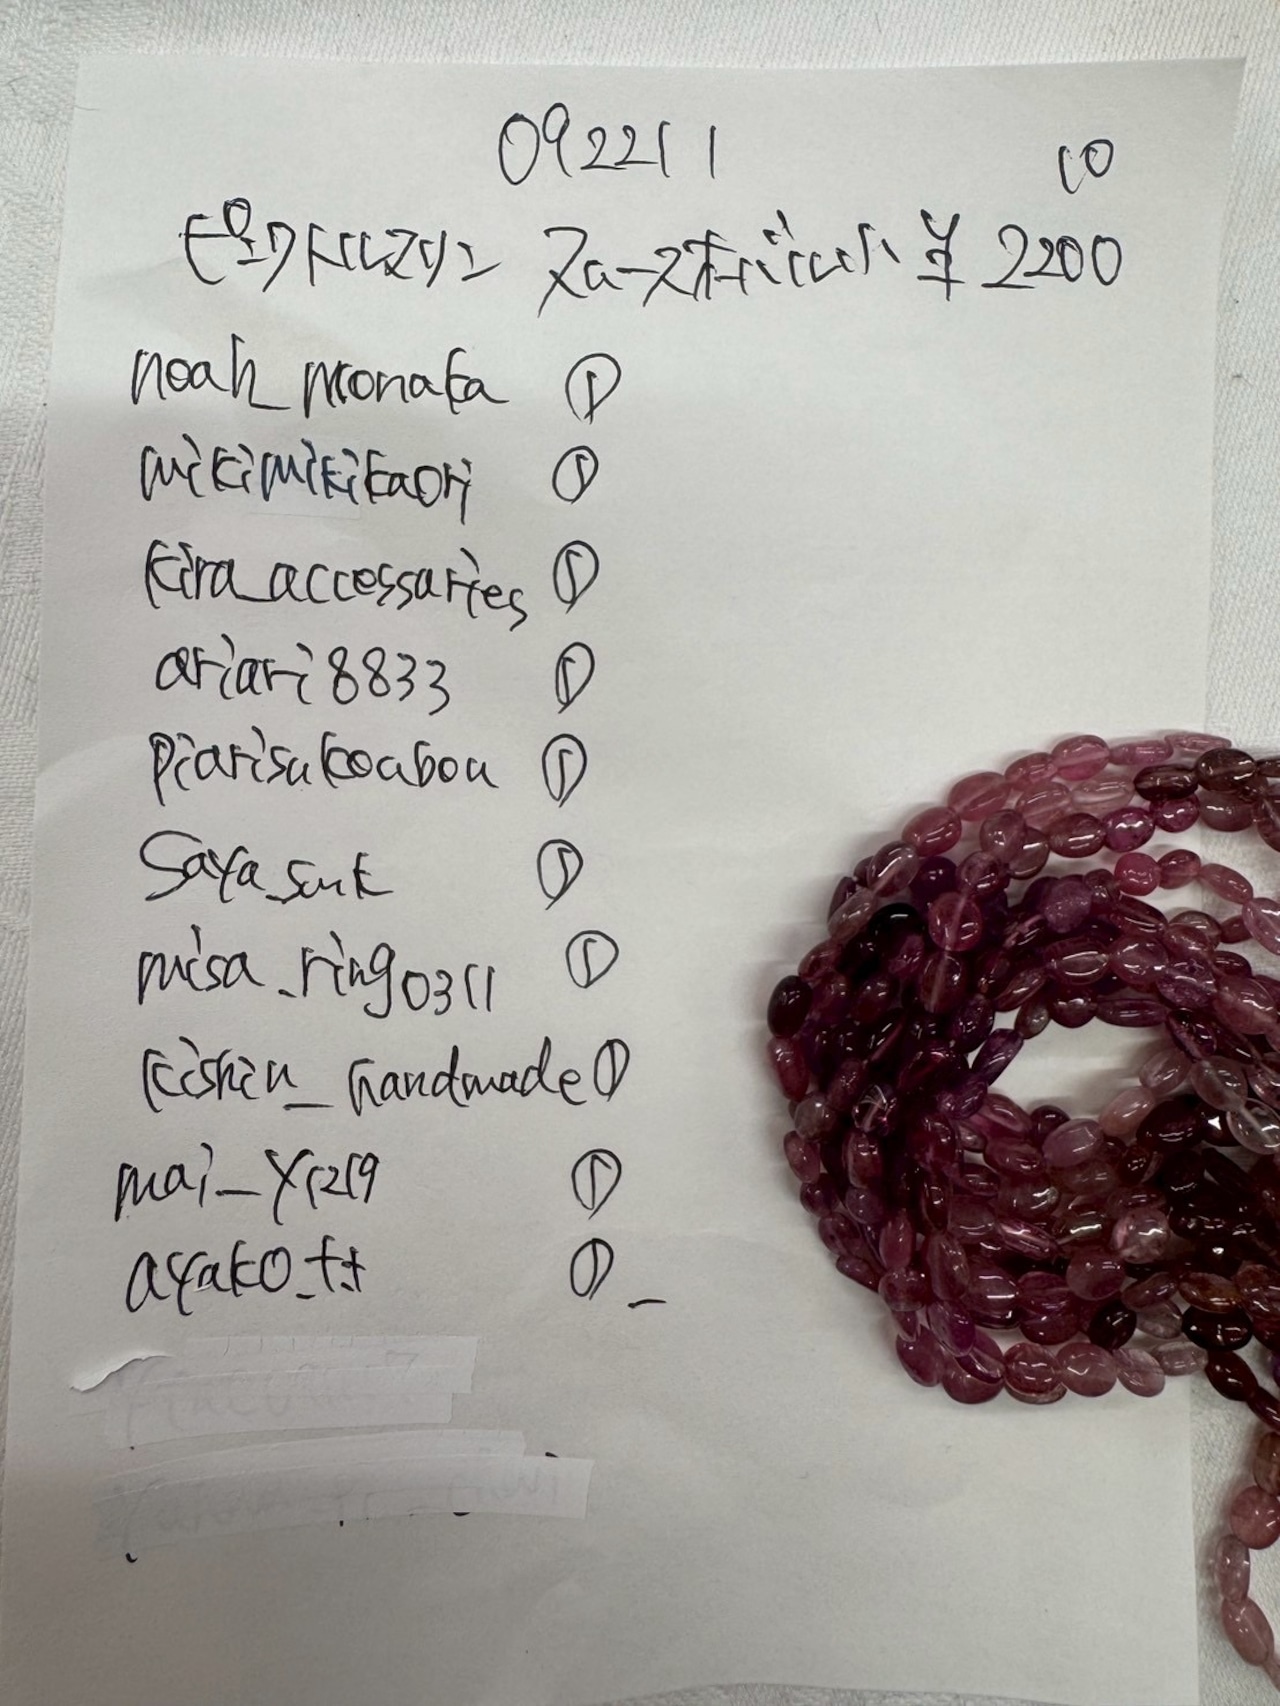 092211 10
ピンクトルマリン ルースオーバル小 ¥2200
noah_monaka ①
mikimikikaori ①
kira_accessaries ①
ariari8833 ①
piarisukoubou ①
saya_sunk ①
misa_ring0311 ①
kishin_handmade ①
mai_y1219 ①
ayako_tt ①